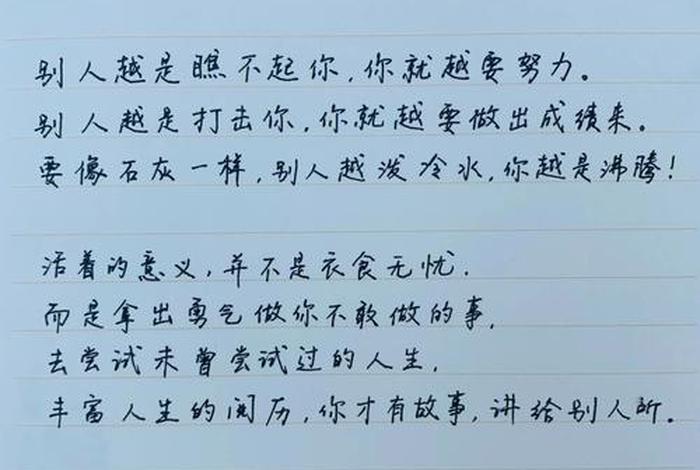 别人越是瞧不起你,你就越要努力。
别人越是打击你,你就越要做出成绩来。
要像石灰一样,别人越泼冷水,你越是沸腾!
活着的意义,并不是衣食无忧.
而是拿出勇气做你不敢做的事,
去尝试未曾尝试过的人生,
丰富人生的阅历,你才有故事,讲给别人听。